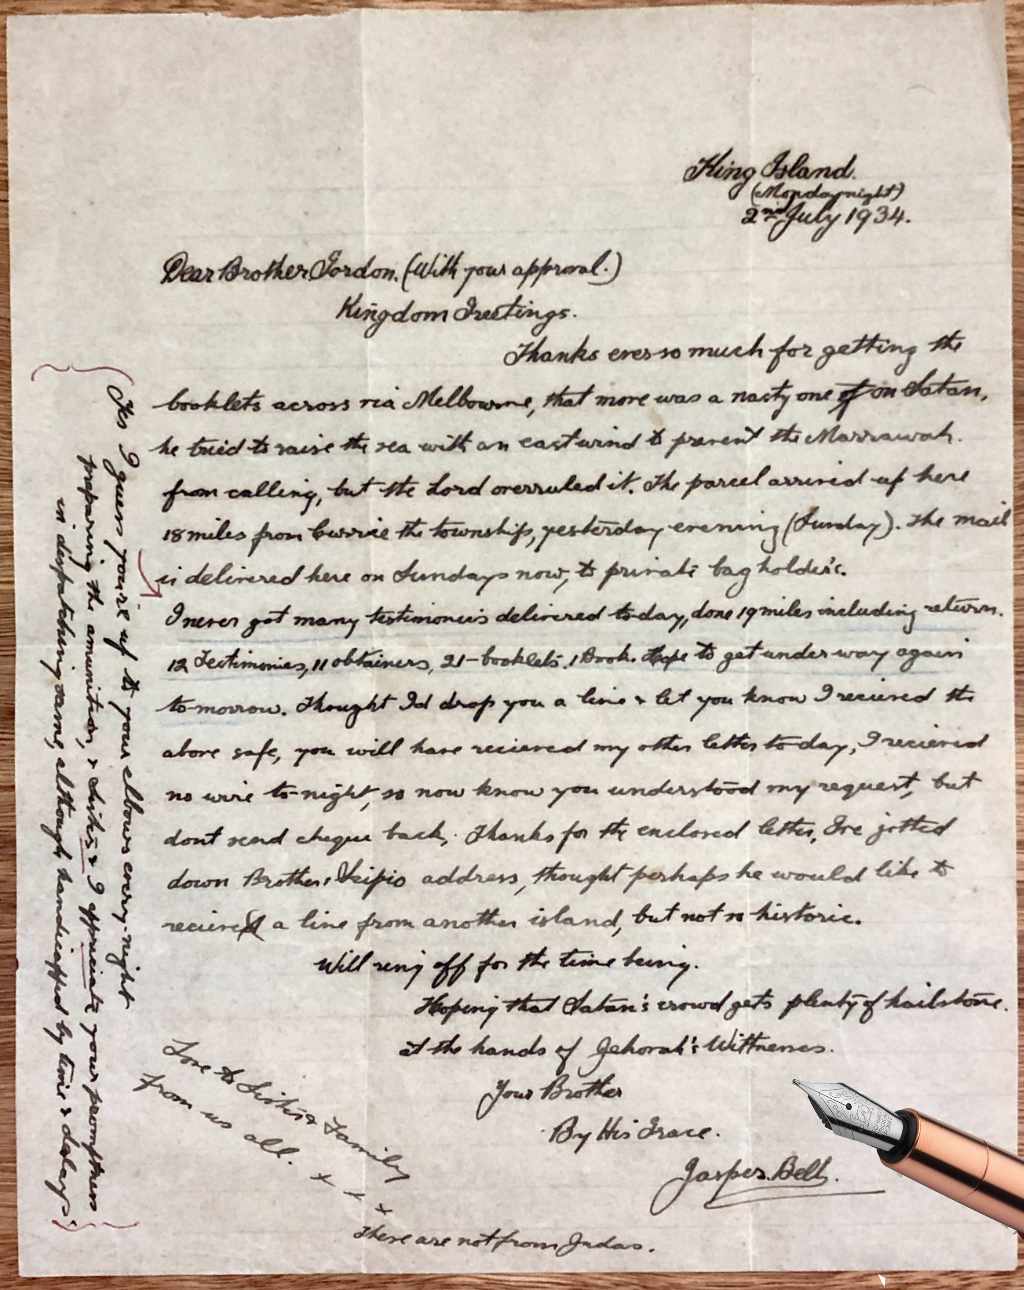 King Island.
(Monday night)
2nd July 1934.
Dear Brother Gordon. (With your approval.)
Kingdom Greetings.
Thanks ever so much for getting the
booklets across via Melbourne, that more was a nasty one on Satan,
he tried to raise the sea with an east wind to prevent the Marrawah.
from calling, but the Lord overruled it. The parcel arrived up here
18 miles from Currie the township, yesterday evening (Sunday). The mail
is delivered here on Sundays now, to private bag holders.
I never got many testimonies delivered to-day, done 19 miles including return.
12 Testimonies, 11 obtainers, 21-booklets, 1 Book. Hope to get under way again
to-morrow. Thought I'd drop you a line & let you know I recieved the
above safe, you will have recieved my other letter to-day, I recieved
no wire to-night, so now know you understood my request, but
dont send cheque back. Thanks for the enclosed letter, I've jotted
down Brother Scipio address, thought perhaps he would like to
recieve a line from another island, but not so historic.
Will ring off for the time being.
Hoping that Satan's crowd gets plenty of hailstone.
at the hands of Jehovah's Wittnesses.
Your Brother
By His Grace.
Jasper Bell.
Love to Sister & Family
from us all. x x x
These are not from Judas.
Yes I guess you're up to your elbows every night
preparing the amunition, & Sister & I appriciate your promptness
in despatching same, although handicapped by time & delays.